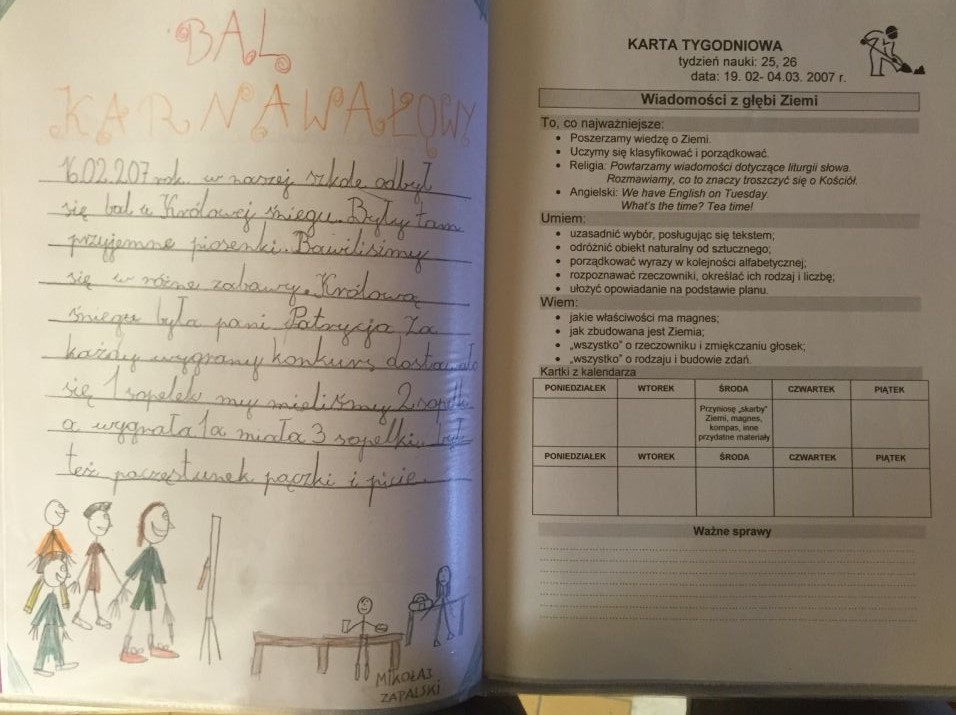 BAL
KARNAWAŁOWY
16.02.207 rok. w naszej szkole odbył
się bal u Królowej śniegu. Były tam
przyjemne piosenki. Bawiliśimy
się w różne zabawy. Królową
śniegu była pani Patrycja Za
każdy wygrany konkurs dostawało
się 1 sopelek my mieliśmy 2 sopelki
a wygrała 1a miała 3 sopelki. był
też poczęstunek pączki i picie.
MIKOŁAJ
ZAPALSKI
KARTA TYGODNIOWA
tydzień nauki: 25, 26
data: 19. 02- 04.03. 2007 r.
Wiadomości z głębi Ziemi
To, co najważniejsze:
• Poszerzamy wiedzę o Ziemi.
• Uczymy się klasyfikować i porządkować.
• Religia: Powtarzamy wiadomości dotyczące liturgii słowa.
Rozmawiamy, co to znaczy troszczyć się o Kościół.
• Angielski: We have English on Tuesday.
What's the time? Tea time!
Umiem:
• uzasadnić wybór, posługując się tekstem;
• odróżnić obiekt naturalny od sztucznego;
• porządkować wyrazy w kolejności alfabetycznej;
• rozpoznawać rzeczowniki, określać ich rodzaj i liczbę;
• ułożyć opowiadanie na podstawie planu.
Wiem:
• jakie właściwości ma magnes;
• jak zbudowana jest Ziemia;
• „wszystko" o rzeczowniku i zmiękczaniu głosek;
• „wszystko" o rodzaju i budowie zdań.
Kartki z kalendarza
PONIEDZIAŁEK WTOREK ŚRODA CZWARTEK PIĄTEK
Przyniosę „skarby"
Ziemi, magnes,
kompas, inne
przydatne materiały
PONIEDZIAŁEK WTOREK ŚRODA CZWARTEK PIĄTEK
Ważne sprawy